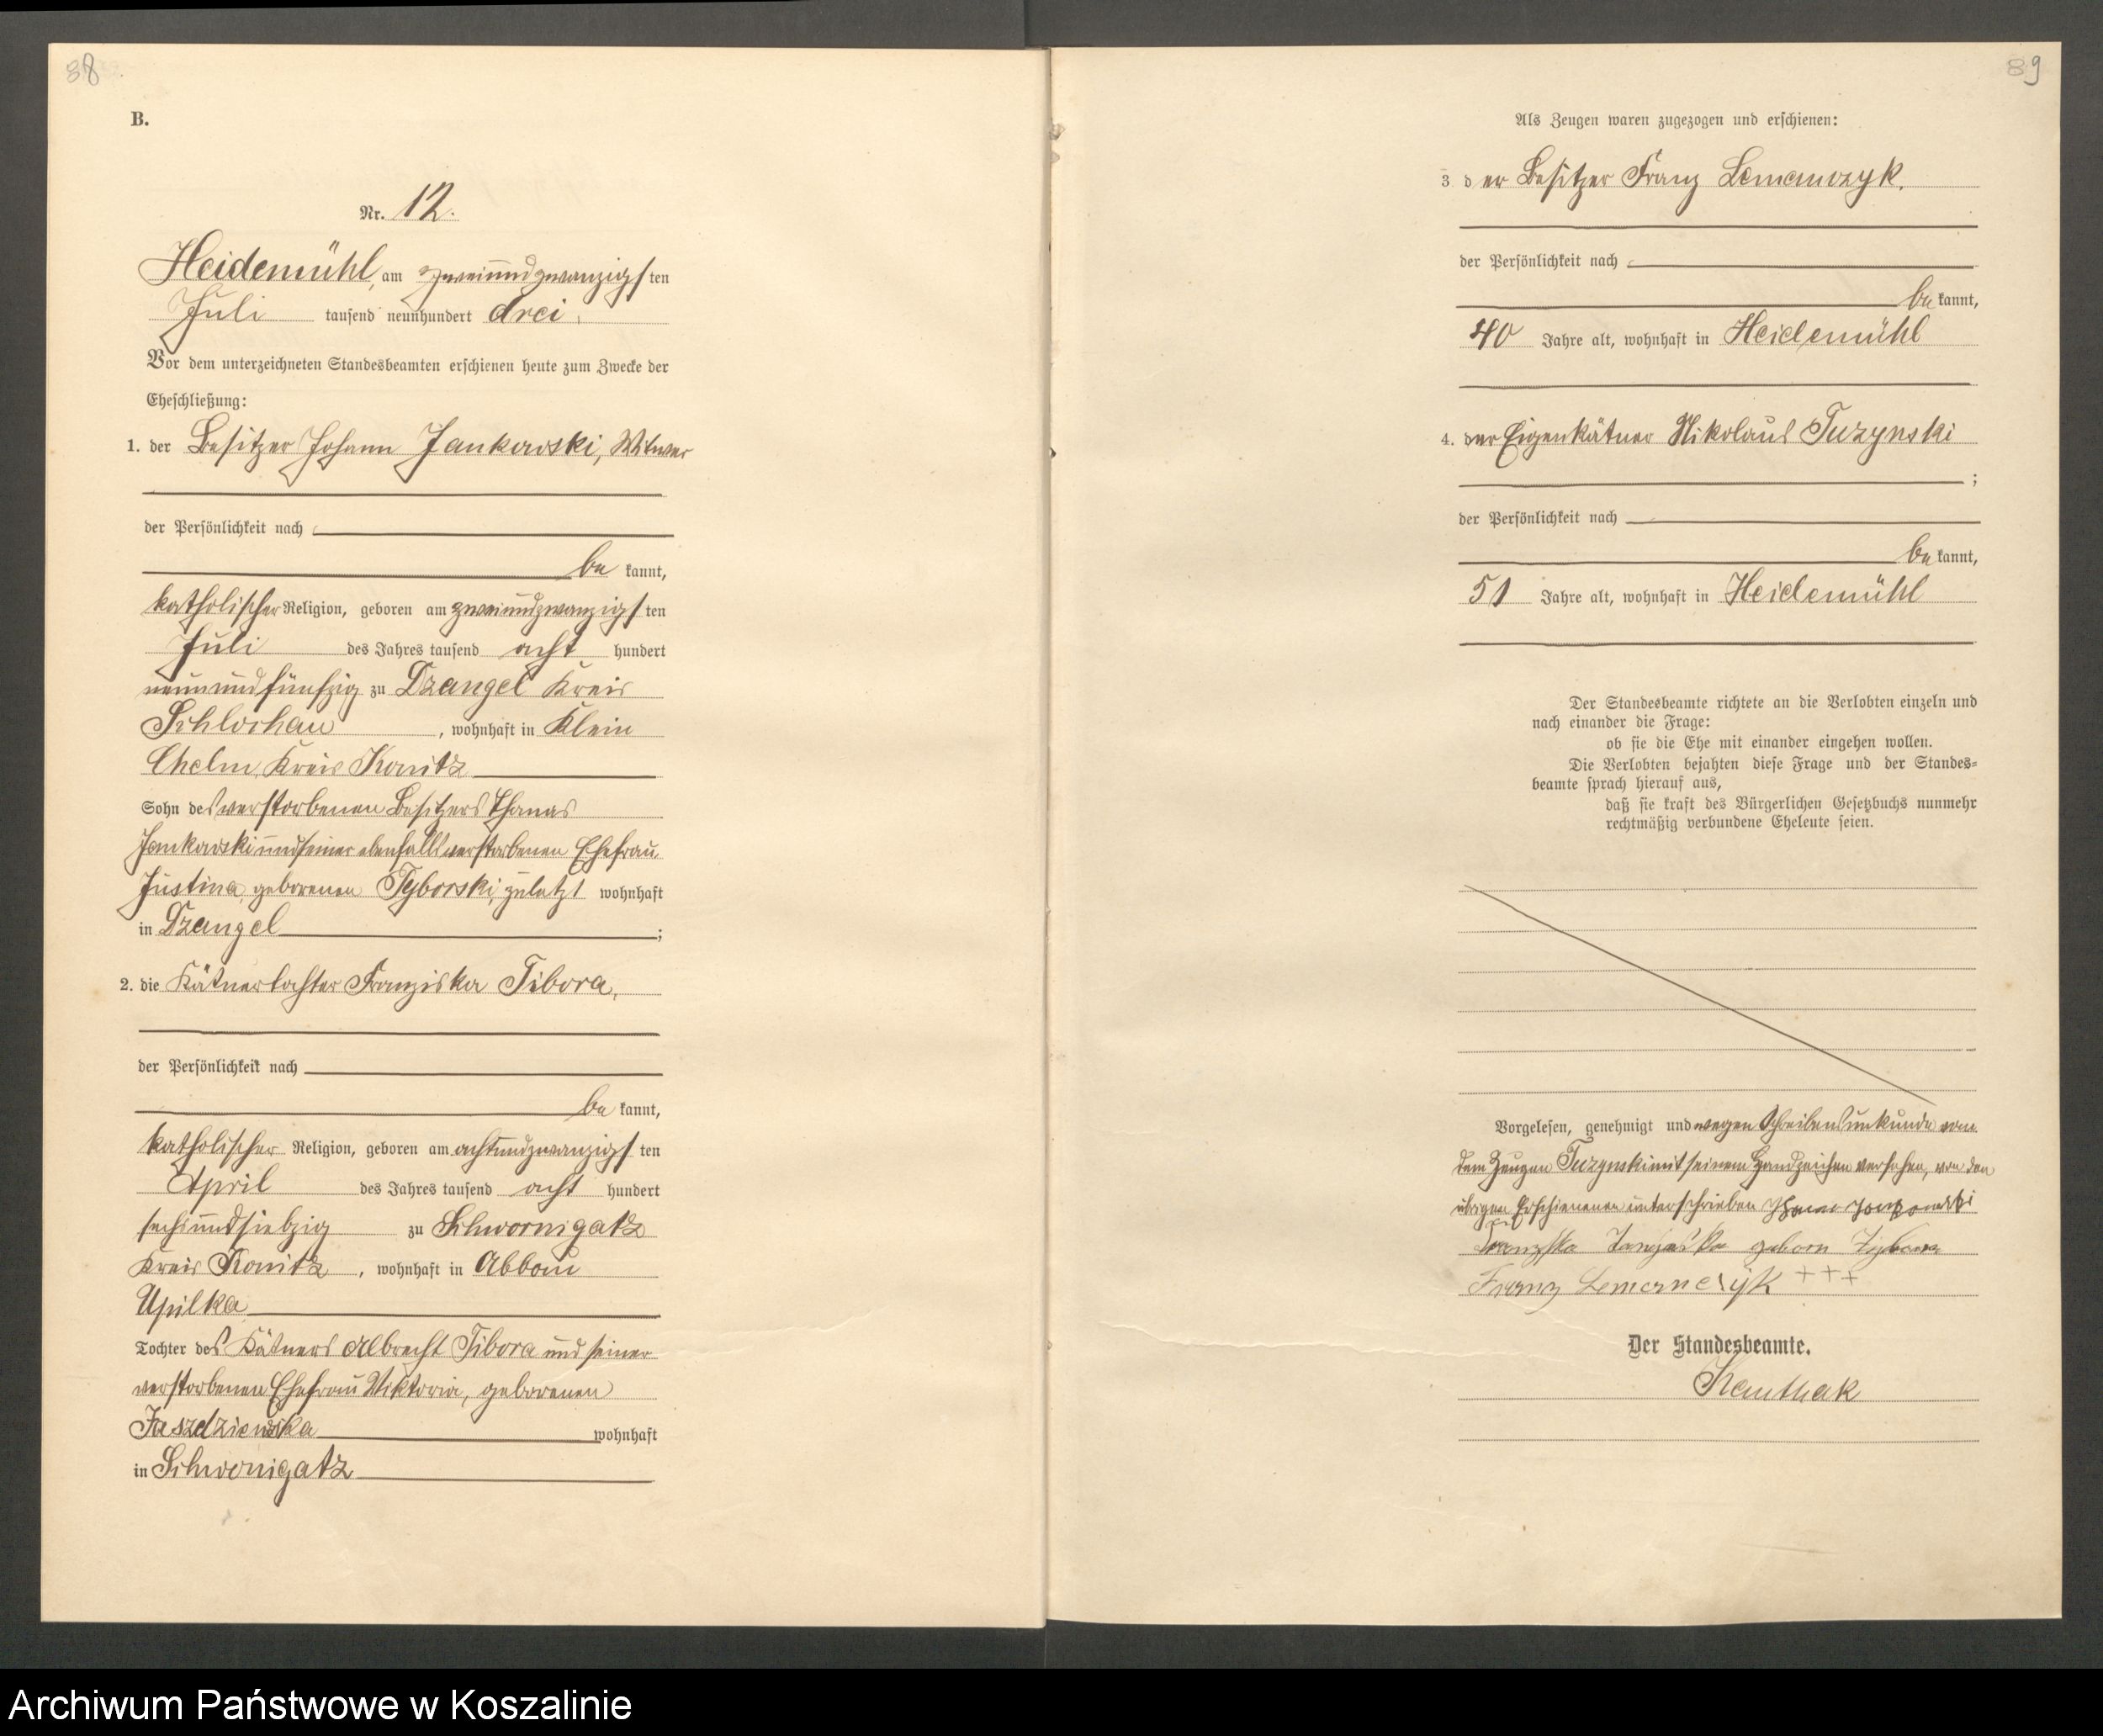 38
B.
Nr. 12.
Heidemühl, am zweiundzwanzigsten
Juli tausend neunhundert drei.
Vor dem unterzeichneten Standesbeamten erschienen heute zum Zwecke der
Eheschließung:
1. der Besitzer Johann Jankowski, Witwer
der Persönlichkeit nach
be kannt,
katholischer Religion, geboren am zweiundzwanzigsten
Juli des Jahres tausend acht hundert
neunundfünfzig zu Dzangel Kreis
Schlochau, wohnhaft in Klein
Chelm, Kreis Konitz
Sohn des verstorbenen Besitzers Thomas
Jankowski und seiner ebenfalls verstorbenen Ehefrau
Justina, geborenen Tyborski, zuletzt wohnhaft
in Dzangel ;
2. die Kätnertochter Franziska Tibora,
der Persönlichkeit nach
be kannt,
katholischer Religion, geboren am achtundzwanzigsten
April des Jahres tausend acht hundert
sechsundsiebzig zu Schwornigatz
Kreis Konitz, wohnhaft in Abbau
Upilka
Tochter des Kätners Albrecht Tibora und seiner
verstorbenen Ehefrau Viktoria, geborenen
wohnhaft
in Schwonigatz
89
Als Zeugen waren zugezogen und erschienen:
3 der Besitzer Franz Lemanczyk.
der Persönlichkeit nach
be kannt,
40 Jahre alt, wohnhaft in Heidemühl
4. der Eigenkätner Nikolaus Tuzynski
;
der Persönlichkeit nach
be kannt,
51 Jahre alt, wohnhaft in Heidemühl
Der Standesbeamte richtete an die Verlobten einzeln und
nach einander die Frage:
ob sie die Ehe mit einander eingehen wollen.
Die Verlobten bejahten diese Frage und der Standes=
beamte sprach hierauf aus,
daß sie kraft des Bürgerlichen Gesetzbuchs nunmehr
rechtmäßig verbundene Eheleute seien.
Vorgelesen, genehmigt und wegen Schreibensunkunde von
dem Zeugen Tuzynski mit seinem Handzeichen versehen, von den
übrigen Erschienenen unterschrieben Johann Jankowski
geborn
Franz +++
Der Standesbeamte.
Kauthak
Archiwum Państwowe w Koszalinie